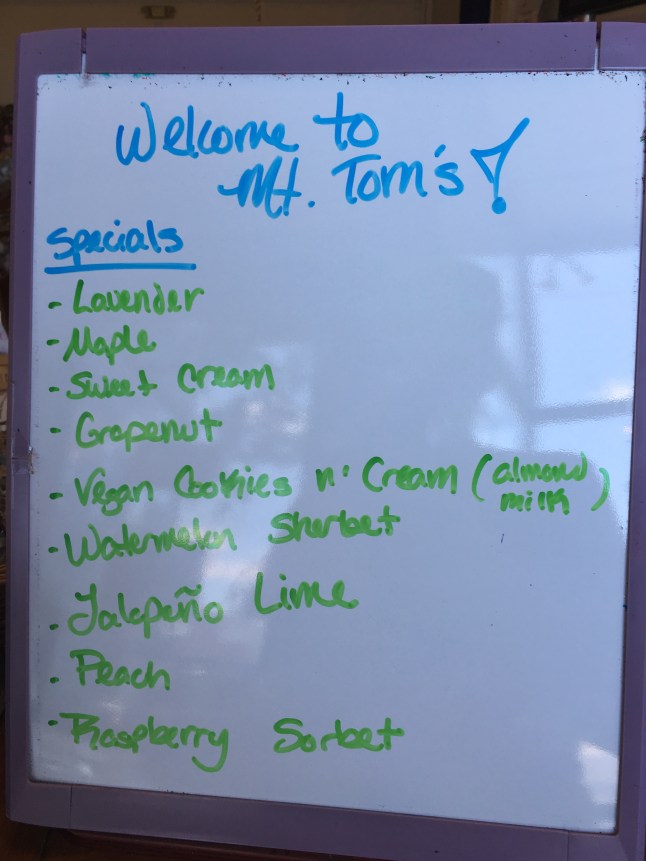 Welcome to
Mt. Tom's!
Specials
- Lavender
- Maple
- Sweet Cream
- Grapenut
- Vegan Cookies n' Cream (almond milk)
- Watermelon Sherbet
- Jalapeño Lime
- Peach
- Raspberry Sorbet